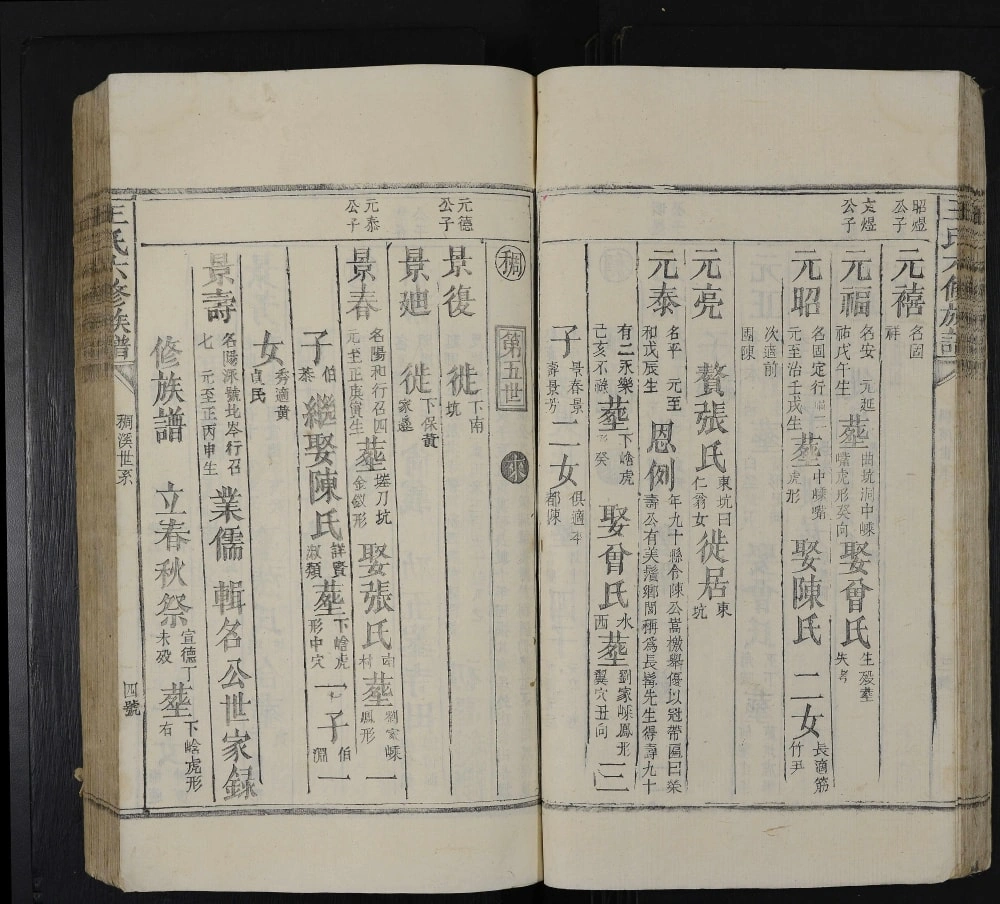 王氏六修族譜
昭煜公子
元禧 名固祥
文煜公子
元福 名安祐 元延戊午生 葬曲坑洞中嵊嘴虎形癸向 娶曾氏 生殁葬失考
元昭 名固定行 元至治壬戌生 葬中嵊嘴虎形 娶陳氏 二女 長適筋竹尹
次適前團陳
元亮 贅張氏 東坑曰仁翁女 徙居東坑
元泰 名平 元至和戊辰生 恩例 年九十縣令陳公嵩檄舉優以冠帶匾曰榮壽公有美鬚鄉閭稱為長髯先生得壽九十
有二永樂己亥不祿 葬下嶦虎形 癸 娶曾氏 水西 葬劉家嵊鳳形翼穴丑向 三
子 景春景壽景芳 二女 俱適本都陳
稠 第五世 派
元德公子
景復 徙下南坑
景廸 徙下保黃家邊
元泰公子
景春 名陽和行召四 元至正庚寅生 葬搓刀坑金釵形 娶張氏 南村 葬劉家嵊鳳形 一
子 伯恭 繼娶陳氏 詳賢淑類 葬下嶦虎形中穴 一子 伯淵 一
女 秀適黃貞民
景壽 名陽泳號北岺行召七 元至正丙申生 業儒 輯名公世家録
修族譜 立春秋祭 宣德丁未殁 葬下嶦虎形右
王氏六修族譜
稠溪世系
四號